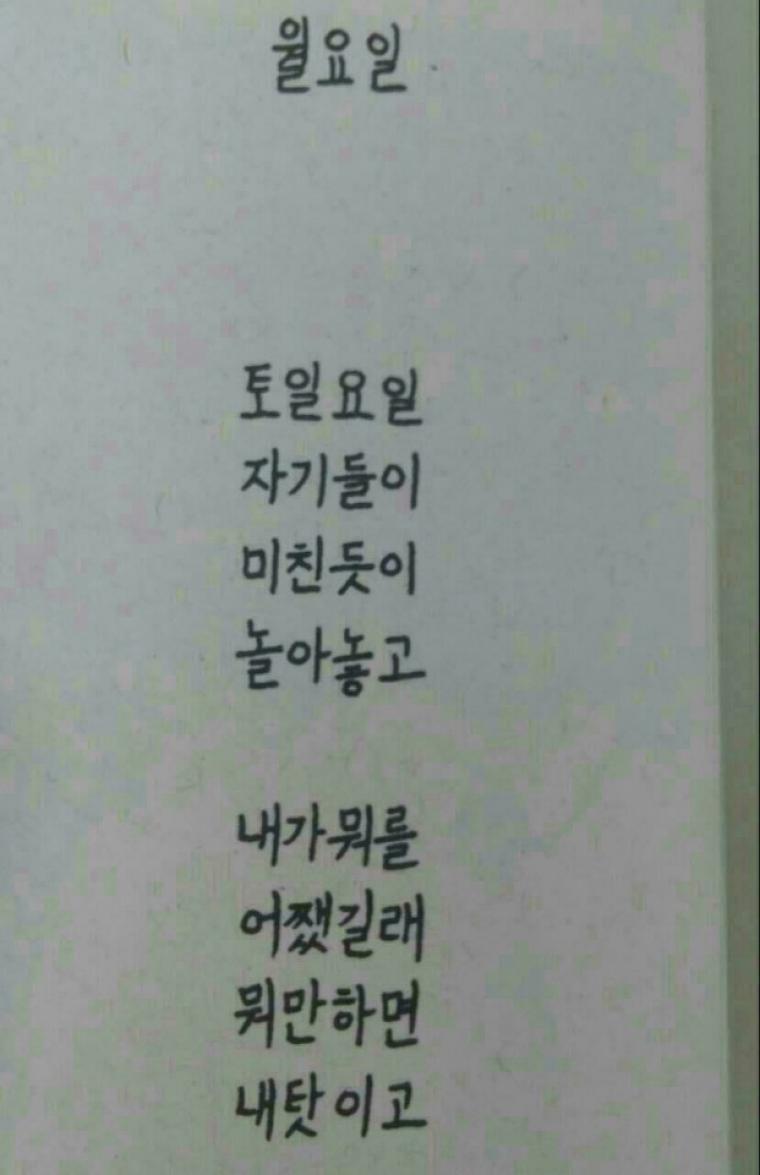 월요일
토일요일
자기들이
미친듯이
놀아놓고
내가뭐를
어쨌길래
뭐만하면
내탓이고